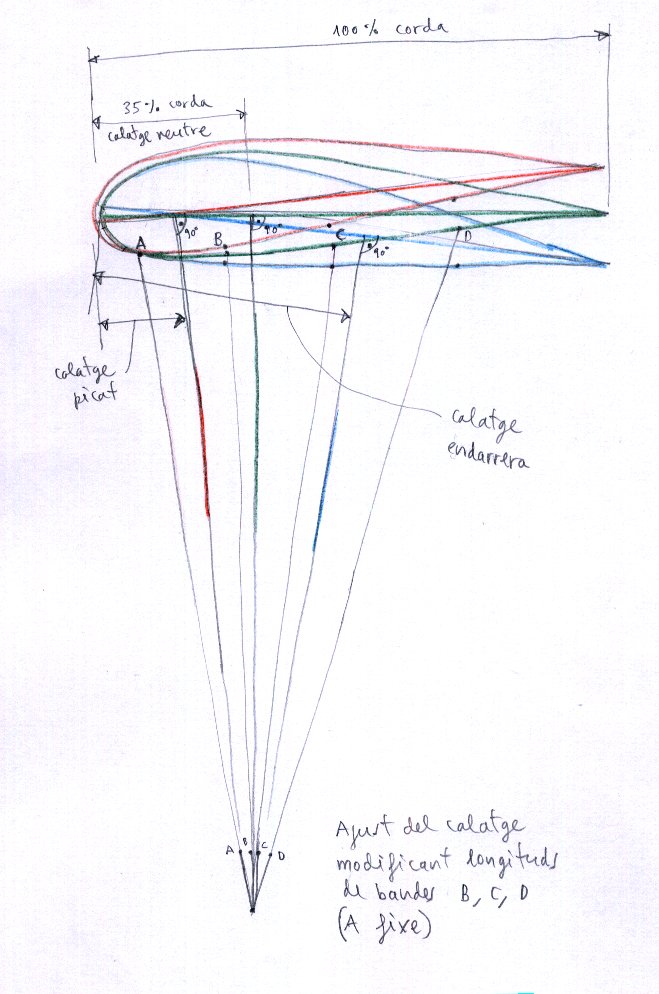 100% corda
35% corda
calatge neutre
90°
90°
90°
A
B
C
D
calatge
picat
calatge
endarrera
A
B
C
D
Ajust del calatge
modificant longituds
de bandes B, C, D
(A fixe)